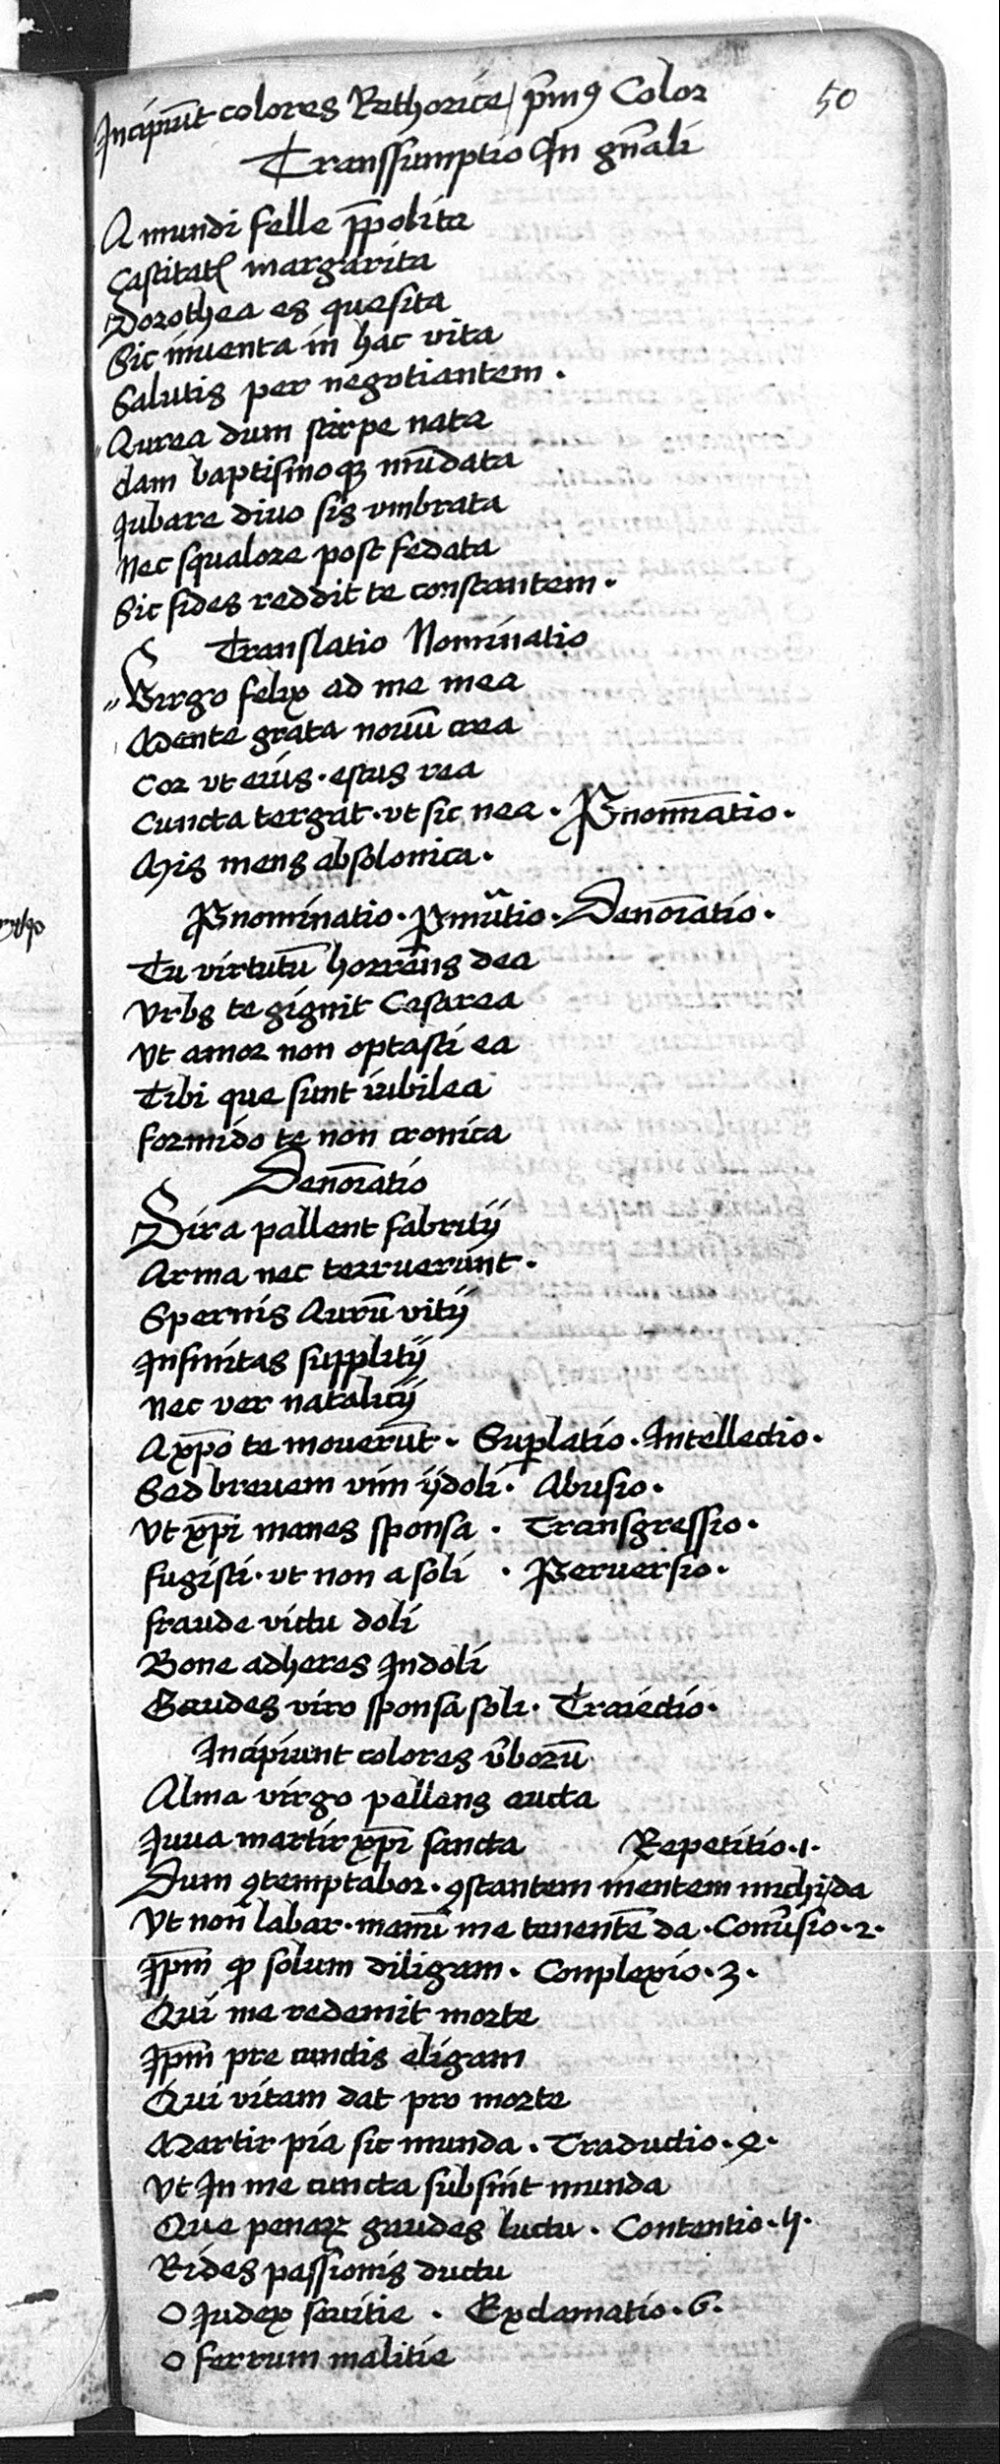 Incipiũt colores Rethorice / p̃mꝯ Color
50
Transsumptio In gñali
A mundi felle p̱polita
Castitatꝭ margarita
Dorothea es quesita
Sic inuenta in hac vita
Salutis per negotiantem .
Aurea dum stirpe nata
dam baptismoqꝫ mũdata
Iubare diuo sis vmbrata
Nec squalore post fedata
Sic fides reddit te constantem .
Translatio Nominatio
Virgo felix ad me mea
Adente grata nouũ crea
Cor vt eius . estus rea
Cuncta tergat . vt sic nea . Pnoĩatio .
His mens absolonica .
Pnominatio . Pmũtio . Denoĩatio .
Tu virtutũ horrens dea
Vrbs te gignit Cesarea
Vt amor non optasti ea
Tibi que sunt iubilea
formido te non cronica
Denoĩatio
Dira pallent fabritij
Arma nec terruerunt .
Spernis Aurũ vitij
Infinitas supplitij
Nec ver natalicij
A xp̃o te mouerũt . Suꝑlatio . Intellectio .
Sed breuem vim ijdoli . Abusio .
Vt xp̃i manes sponsa . Transgressio .
fugisti . vt non a soli . Peruersio .
fraude victu doli
Bone adheres Indoli
Gaudes viro sponsa soli . Traiectio .
Incipiunt colores v̾borũ
Alma virgo pellens cucta
Iuua martir xp̃i sancta Repetitio . 1 .
Dum ꝯtemptabor . ꝯstantem mentem michi da
Vt non labar . manũ me tenentẽ da . Conu̾sio . 2 .
Ip̃m ꝙ solum diligam . Conplexio . 3 .
Qui me redemit morte
Ip̃m pre cunctis eligam
Qui vitam dat pro morte
Martir pia sic munda . Traductio . 4 .
Vt In me cuncta subsint munda
Que penaꝝ gaudes luctu . Contentio . 5 .
Rides passionis ductu
O Iudex seuitie . Exclamatio . 6 .
O ferrum malitie